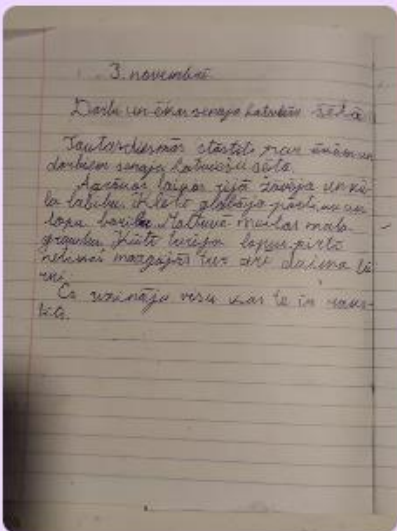 3. novembrī
Darbi un ēkas senajā latviešu sētā
Tautasdziesmās stāstīts par ēkām un
darbiem senajā latviešu sētā.
laipos rijā žāvēja un kū-
la labību. Klētī glabāja
lopu barību. Maltuvē maltas mala
graudus. Kūtī turēja lopus. pirtī
mazgājās tur arī dzima bēr
ni.
Es uzzināju visu kas te ir raks-
tīts.